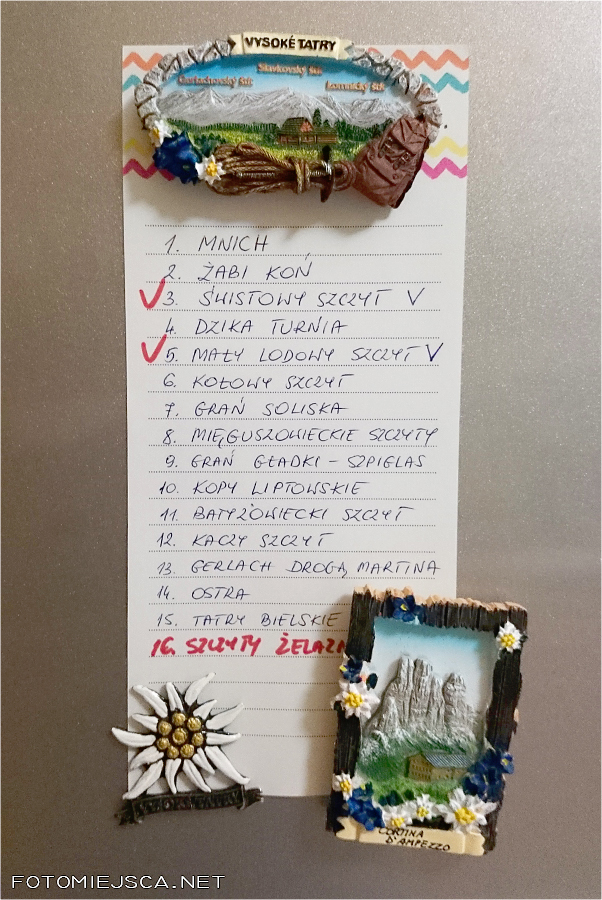 VYSOKÉ TATRY
Slavkovský štít
Gerlachovský štít
Lomnický štít
1. MNICH
2. ŻABI KOŃ
V 3. ŚWISTOWY SZCZYT V
4. DZIKA TURNIA
V 5. MAŁY LODOWY SZCZYT V
6. KOŁOWY SZCZYT
7. GRAŃ SOLISKA
8. MIĘGUSZOWIECKIE SZCZYTY
9. GRAŃ GŁADKI - SZPIGLAS
10. KOPY LIPTOWSKIE
11. BATYŻOWIECKI SZCZYT
12. KACZY SZCZYT
13. GERLACH DROGĄ MARTINA
14. OSTRA
15. TATRY BIELSKIE
16. SZCZYTY
CORTINA
D'AMPEZZO
FOTOMIEJSCA.NET